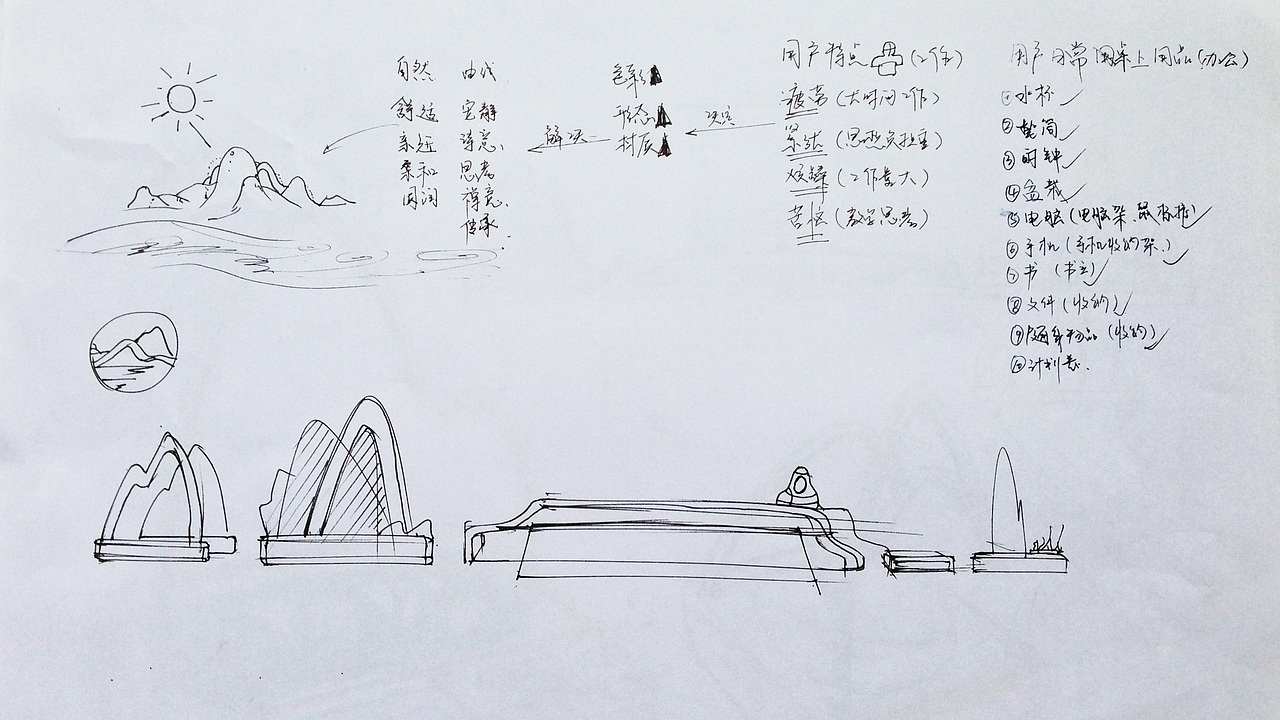 自然 曲线
舒适 安静
亲近 诗意、
柔和 思考
圆润 禅意、
传承
色彩
形态
材质
解决
决定
用户特点 (工作)
疲劳 (大时间工作)
(工作量大)
苦恼 (思考)
用户日常用桌上用品(办公)
①水杯
②笔筒
③时钟
④盆栽
⑤电脑(电脑架、鼠标垫)
⑥手机(手机收纳架、)
⑦书 (书立)
⑧文件(收纳)
⑨随身物品 (收纳)
⑩计划表.